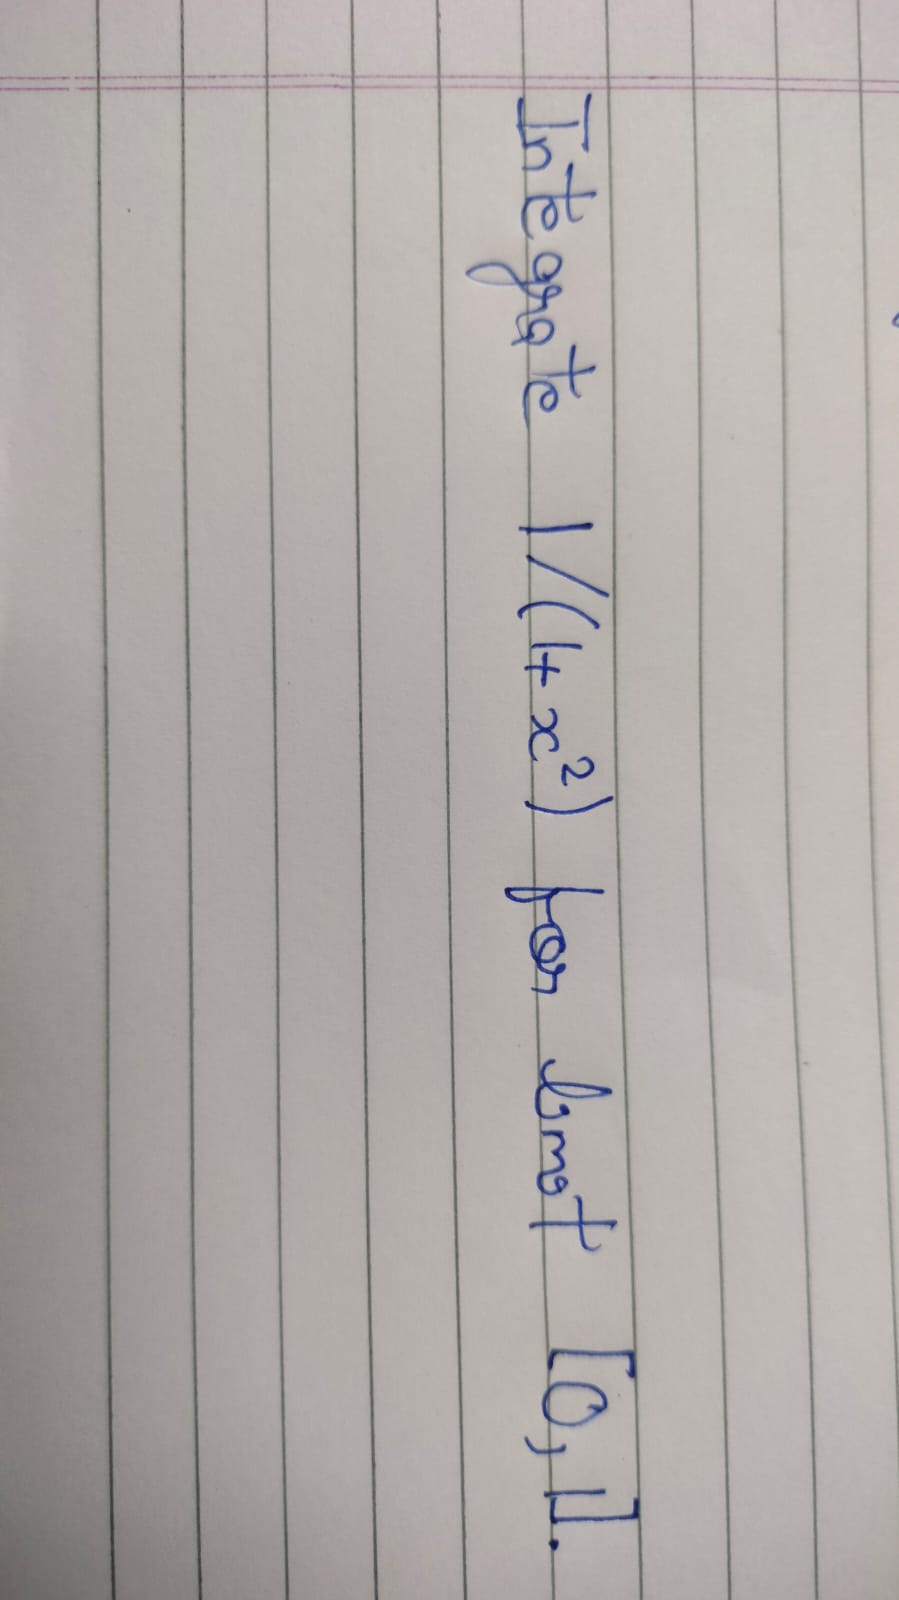 Integrate 1/(1+x²) for limit [0,1].